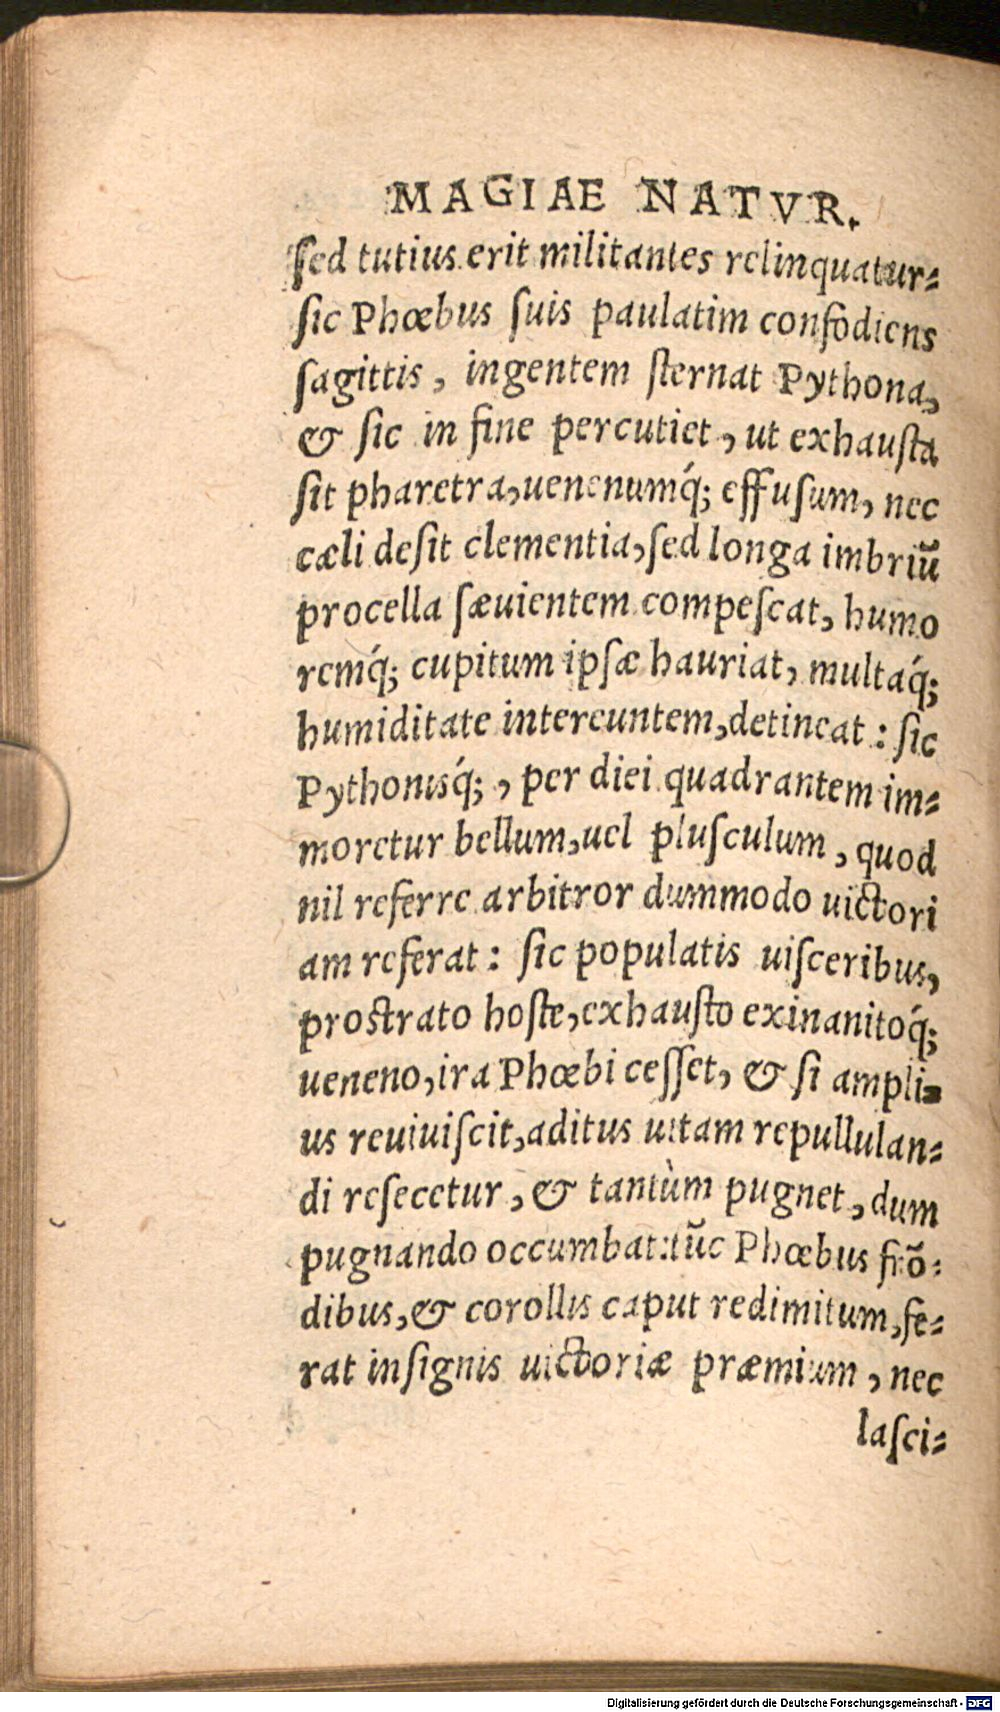 MAGIAE NATVR.
ſed tutius erit militantes relinquatur-
ſic Phœbus ſuis paulatim confodiens
ſagittis, ingentem ſternat Pythona,
& ſic in fine percutiet, ut exhauſta
ſit pharetra, uenenumq́; effuſum, nec
cæli deſit clementia, ſed longa imbriũ
procella ſæuientem compeſcat, humo
remq́; cupitum ipſæ hauriat, multaq́;
humiditate intereuntem, detineat: ſic
Pythonisq́;, per diei quadrantem im-
moretur bellum, uel pluſculum, quod
nil referre arbitror dummodo uictori
am referat: ſic populatis uiſceribus,
proſtrato hoſte, exhauſto exinanitoq́;
ueneno, ira Phœbi ceſſet, & ſi ampli-
us reuiuiſcit, aditus uitam repullulan-
di reſecetur, & tantùm pugnet, dum
pugnando occumbat: tũc Phœbus frõ-
dibus, & corollis caput redimitum, fe-
rat inſignis uictoriæ præmium, nec
laſci-
Digitalisierung gefördert durch die Deutsche Forschungsgemeinschaft - DFG